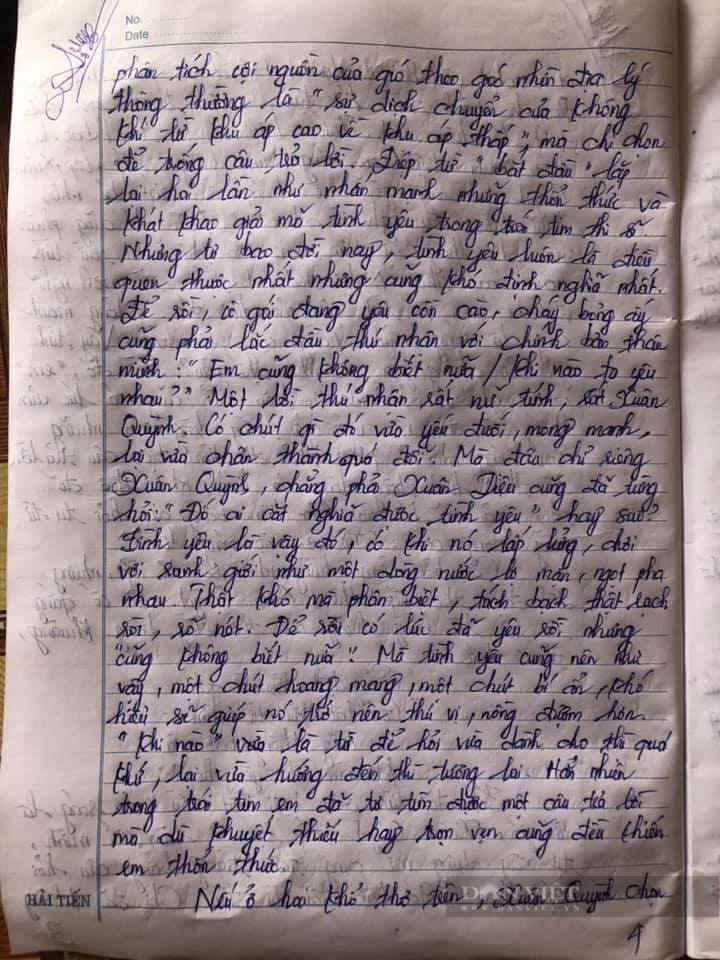 No.
Date
phân tích cội nguồn của gió theo góc nhìn địa lý
thông thường là "sự dịch chuyển của không
khí từ khu áp cao về khu áp thấp", mà chỉ chọn
để trống câu trả lời. Điệp từ "bắt đầu" lặp
lại hai lần như nhấn mạnh những thổn thức và
khát khao giải mã tình yêu trong trái tim thi sĩ.
Nhưng từ bao đời nay, tình yêu luôn là điều
quen thuộc nhất nhưng cũng khó định nghĩa nhất.
Để rồi, cô gái đang yêu cồn cào, cháy bỏng ấy
cũng phải lắc đầu thú nhận với chính bản thân
mình: "Em cũng không biết nữa / Khi nào ta yêu
nhau?" Một lời thú nhận rất nữ tính, rất Xuân
Quỳnh. Có chút gì đó vừa yếu đuối, mong manh,
lại vừa chân thành quá đỗi. Mà đâu chỉ riêng
Xuân Quỳnh, chẳng phải Xuân Diệu cũng đã từng
hỏi: "Đố ai cắt nghĩa được tình yêu" hay sao?
Tình yêu là vậy đó, có khi nó lấp lửng, chơi
với ranh giới như một dòng nước lợ mặn, ngọt pha
nhau. Thật khó mà phân biệt, tách bạch thật rạch
ròi, rõ nét. Để rồi có lúc đã yêu rồi nhưng
"cũng không biết nữa". Mà tình yêu cũng nên như
vậy, một chút hoang mang, một chút bí ẩn, khó
hiểu sẽ giúp nó trở nên thú vị, nồng đượm hơn.
"Khi nào" vừa là từ để hỏi vừa dành cho thì quá
khứ, lại vừa hướng đến thì tương lai. Hẳn nhiên
trong trái tim em đã tự tìm được một câu trả lời
mà dù khuyết thiếu hay trọn vẹn cũng đều khiến
em thổn thức.
Nếu ở hai khổ thơ trên, Xuân Quỳnh chọn
HẢI TIẾN
DÂN VIỆT
4